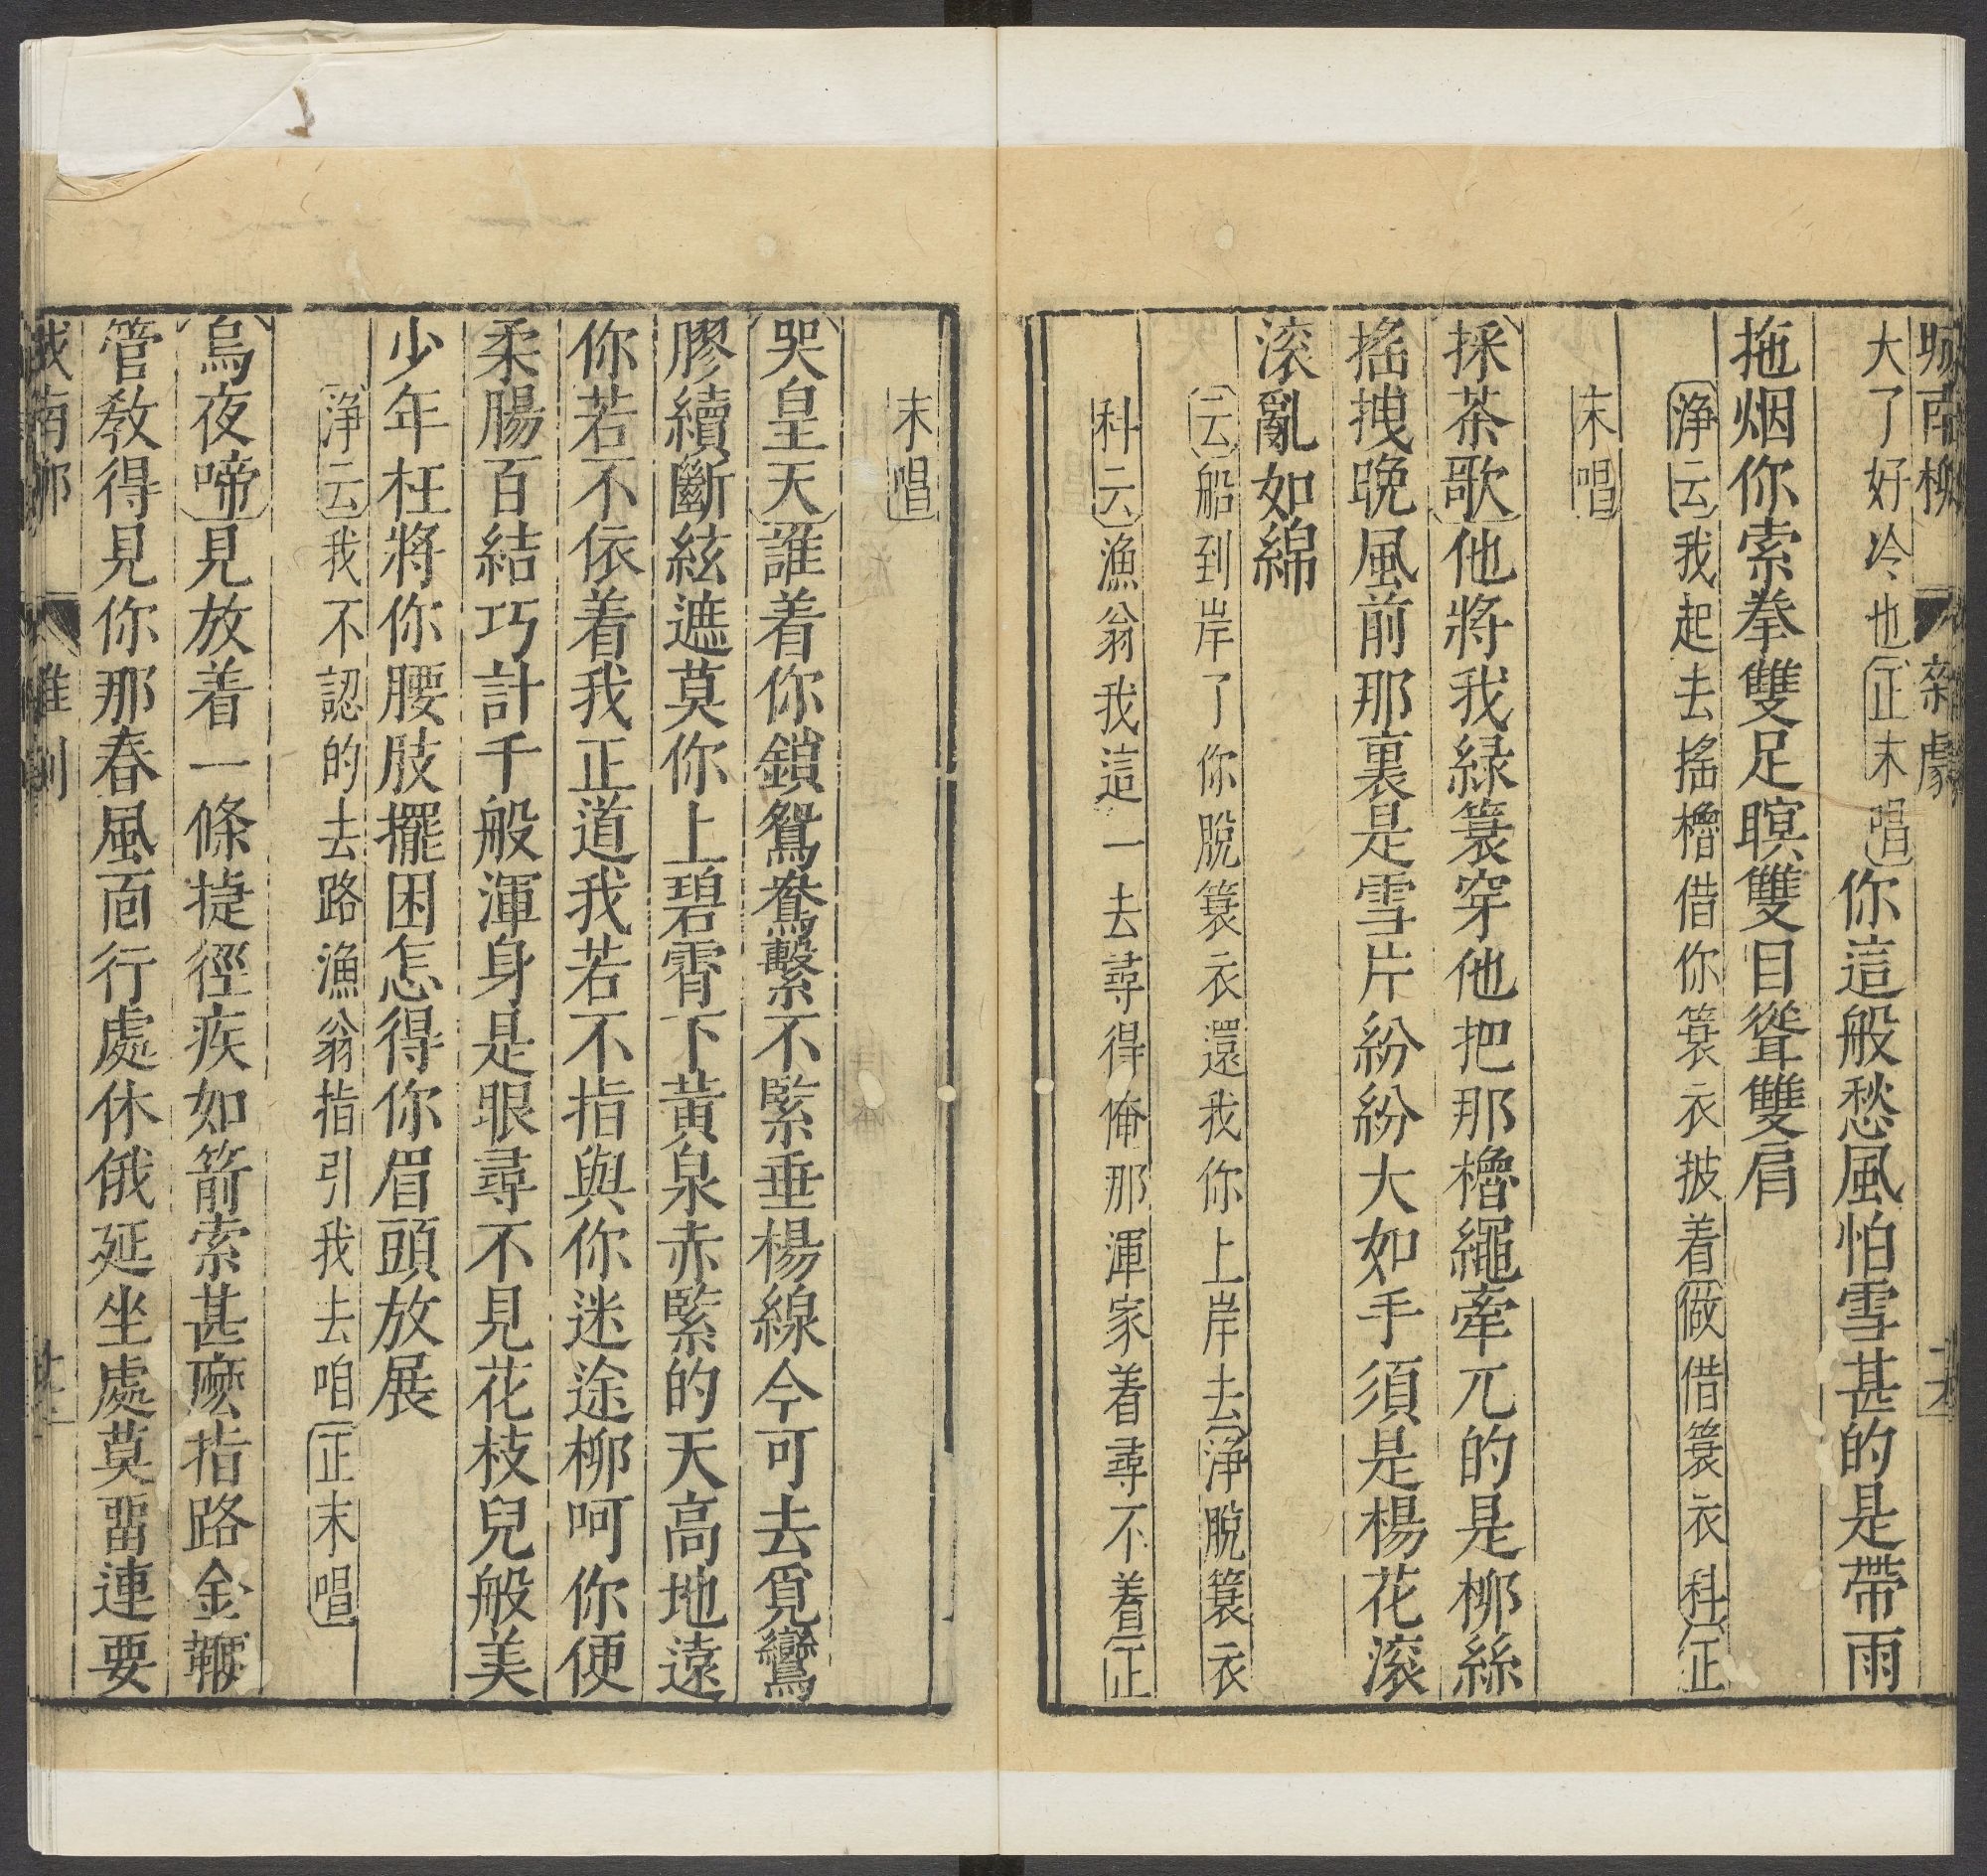 城南柳 雜劇
大了好冷也正末唱你這般愁風怕雪甚的是帶雨
拖烟你索拳雙足瞑雙目聳雙肩
淨云我起去搖櫓借你簑衣披着做借簑衣科正
末唱
採茶歌他將我緑簑穿他把那櫓繩牽兀的是柳絲
搖拽晩風前那裏是雪片紛紛大如手須是楊花滚
滚亂如綿
云船到岸了你脫簑衣還我你上岸去淨脫簑衣
科云漁翁我這一去尋得俺那渾家着尋不着正
末唱
哭皇天誰着你鎖鴛鴦繫不緊垂楊線今可去覓鸞
膠續斷絃遮莫你上碧霄下黃泉赤緊的天高地遠
你若不依着我正道我若不指與你迷途柳呵你便
柔腸百結巧計千般渾身是眼尋不見花枝兒般美
少年枉將你腰肢擺困怎得你眉頭放展
淨云我不認的去路漁翁指引我去咱正末唱
烏夜啼見放着一條捷徑疾如箭索甚麽指路金鞭
管教得見你那春風面行處休俄延坐處莫畱連要
城南柳 雜劇